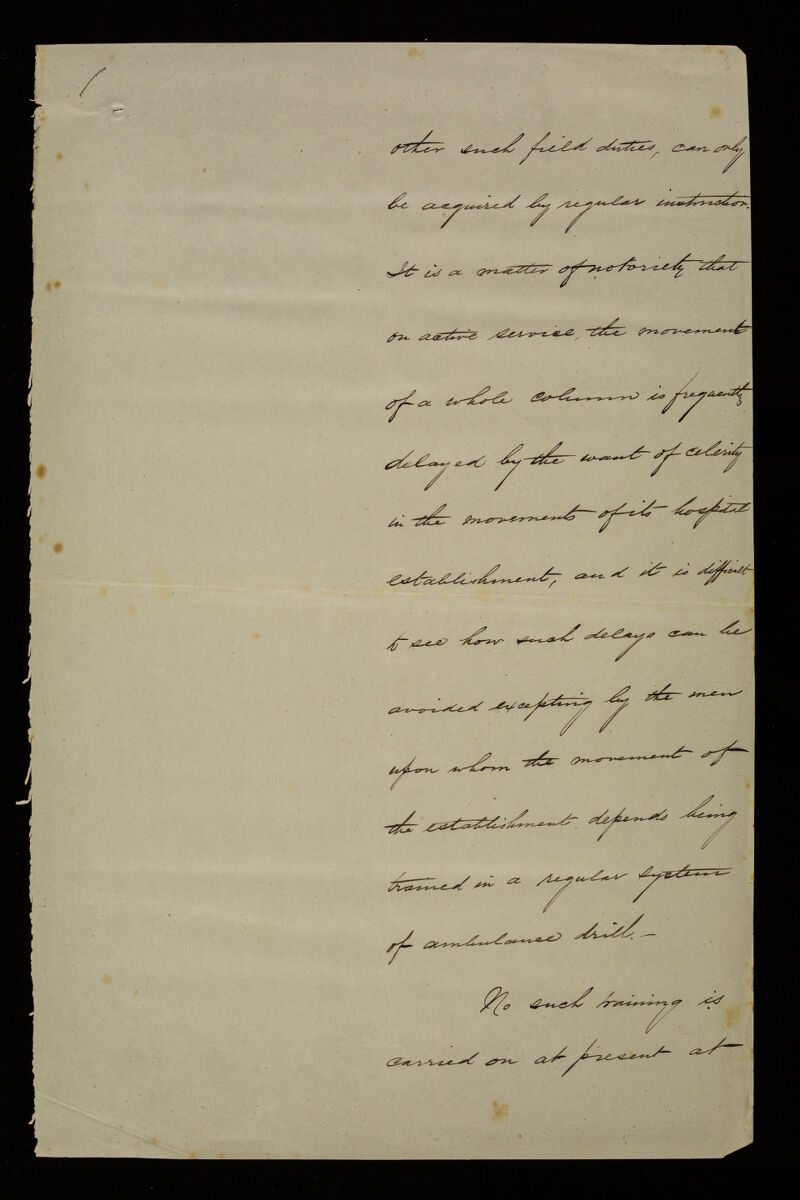 other such field duties, can only
be acquired by regular instruction.
It is a matter of notoriety that
on active service, the movement
of a whole column is frequently
delayed by the want of celerity
in the movements of its hospital
establishment, and it is difficult
to see how such delays can be
avoided excepting by the men
upon whom the movement of
the establishment depends being
trained in a regular system
of ambulance drill. —
No such training is
carried on at present at